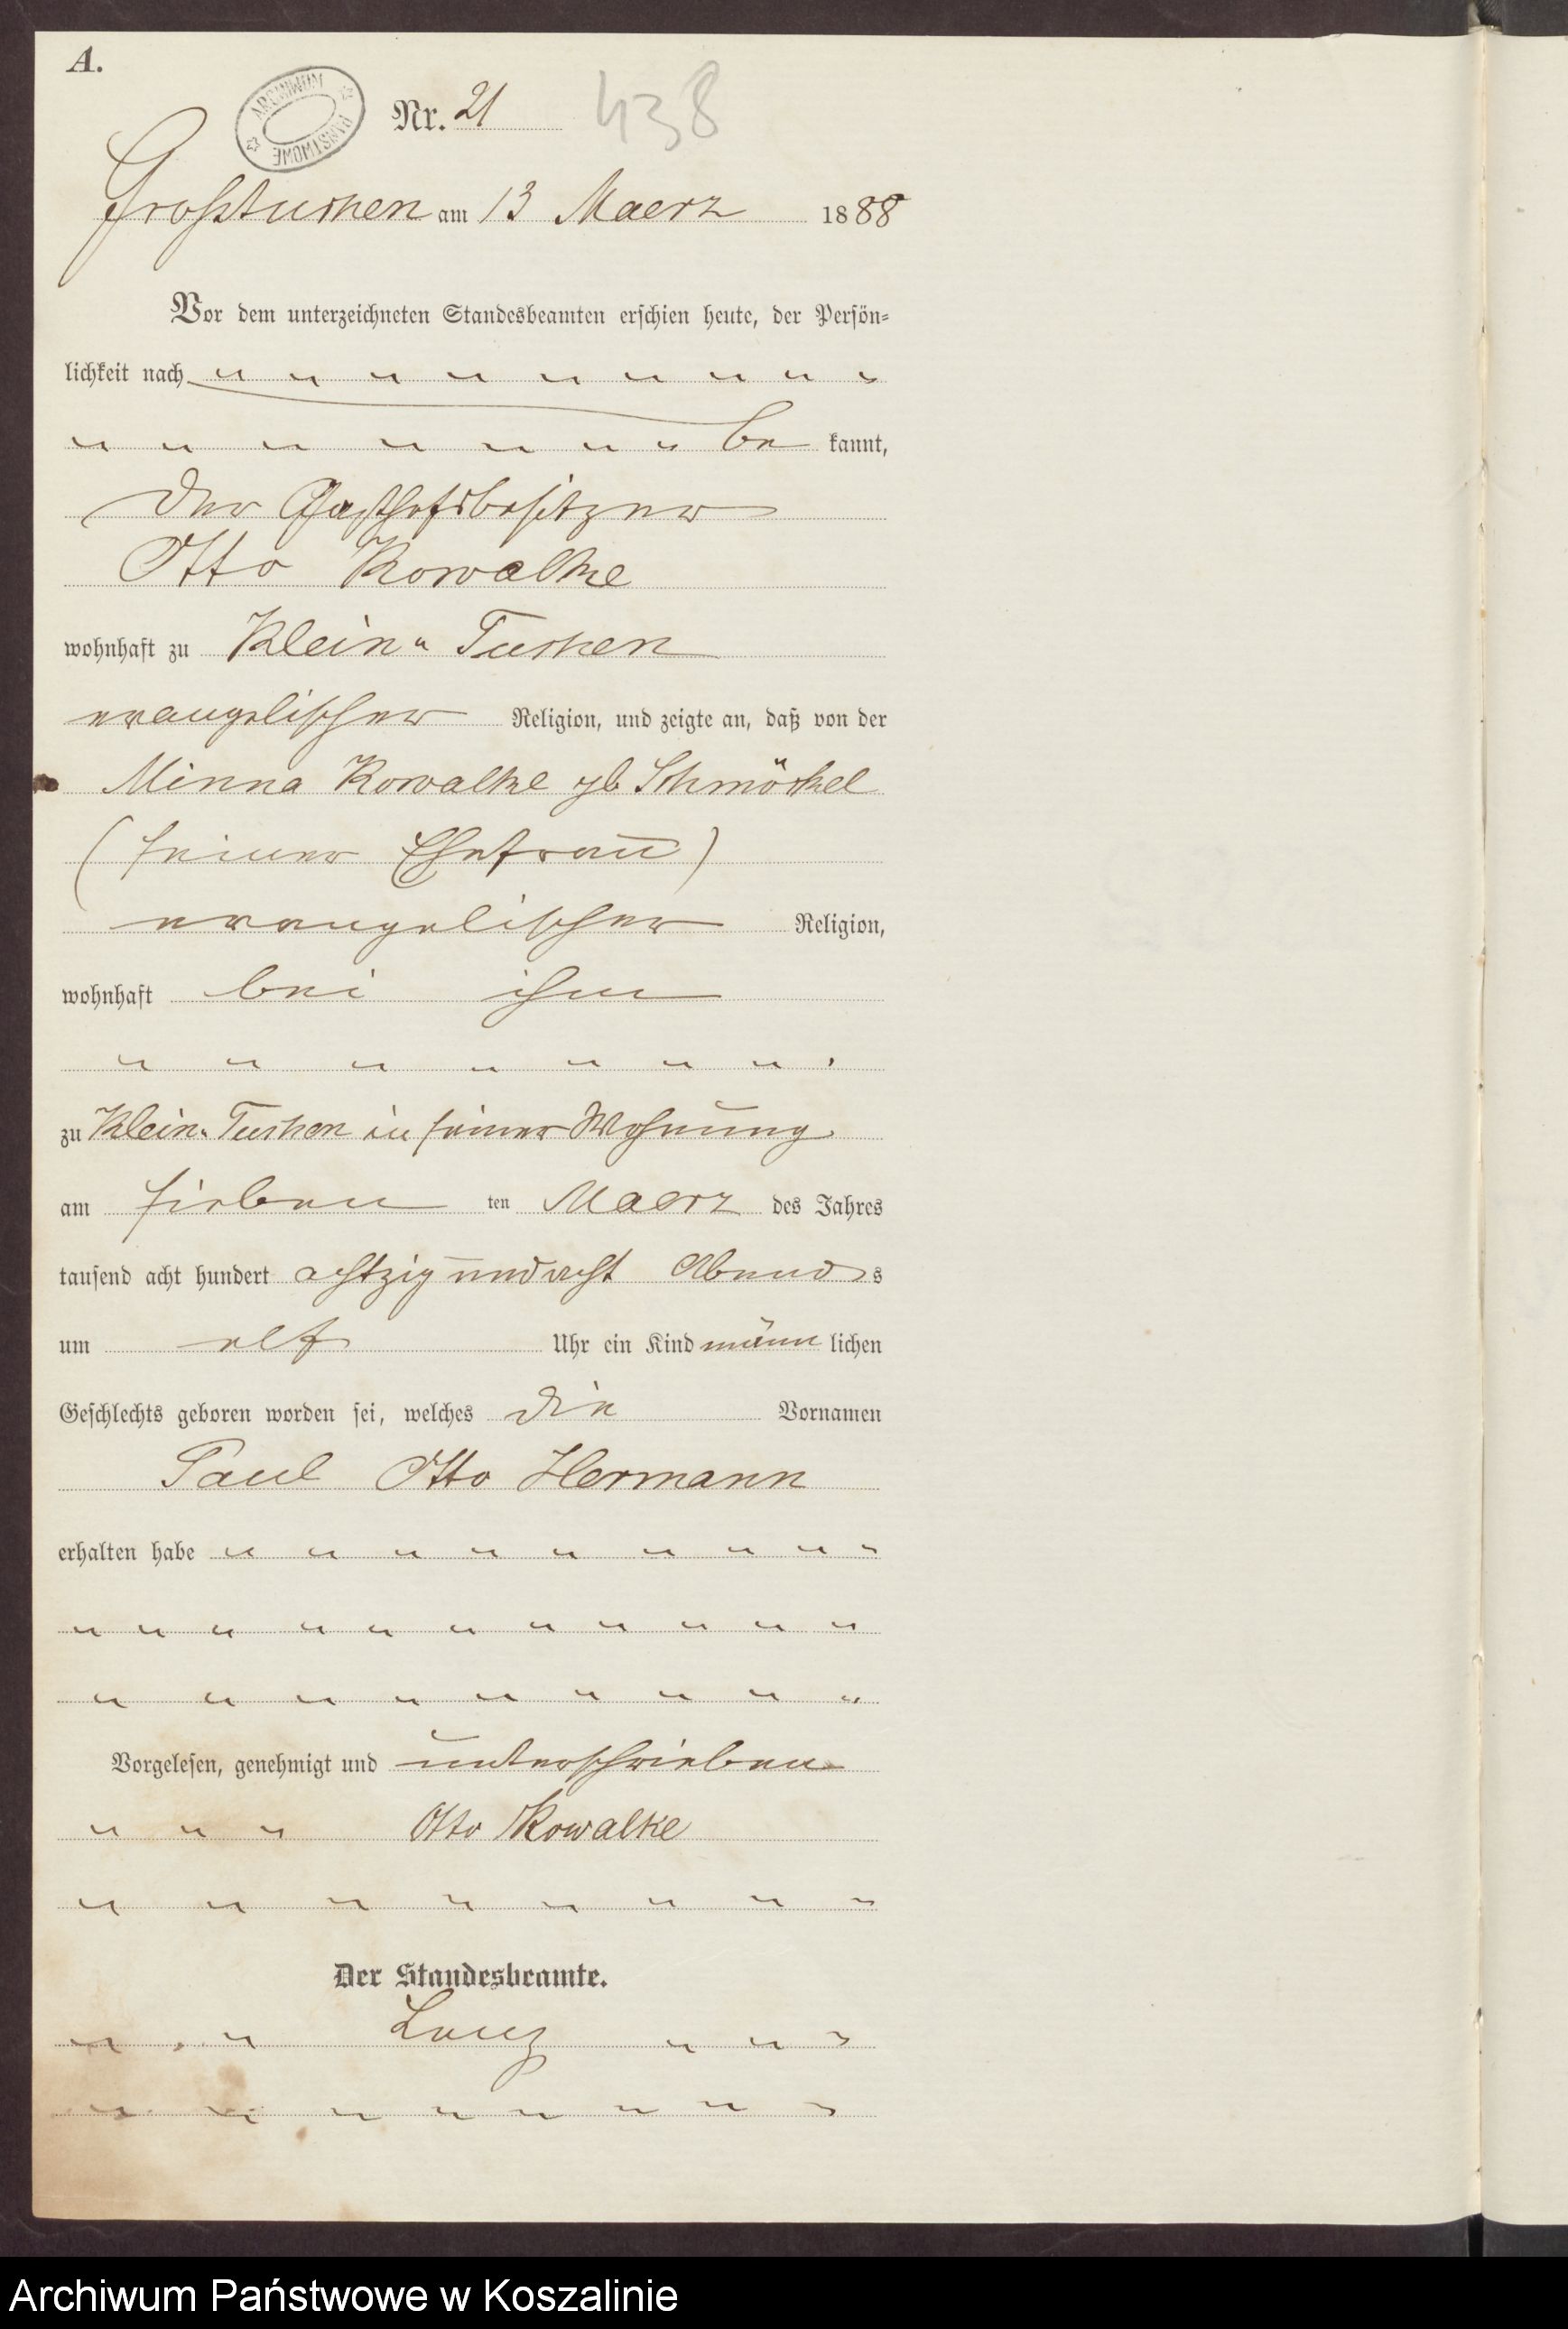 A.
ARCHIWUM PAŃSTWOWE
Nr. 21 438
Großtuchen am 13 Maerz 1888
Vor dem unterzeichneten Standesbeamten erschien heute, der Persön-
lichkeit nach " " " " " " " " "
" " " " " " " be kannt,
der Gasthofsbesitzer
Otto Kowalke
wohnhaft zu Klein " Tuchen
evangelischer Religion, und zeigte an, daß von der
Minna Kowalke gb Schmöckel
(seiner Ehefrau)
evangelischer Religion,
wohnhaft bei ihm
" " " " " " " "
zu Klein " Tuchen in seiner Wohnung
am sieben ten Maerz des Jahres
tausend acht hundert achtzig und acht Abend s
um elf Uhr ein Kind männ lichen
Geschlechts geboren worden sei, welches die Vornamen
Paul Otto Hermann
erhalten habe " " " " " " " " "
" " " " " " " " " " "
" " " " " " " " "
Vorgelesen, genehmigt und unterschrieben
" " " Otto Kowalke
" " " " " " " "
Der Standesbeamte.
" " " " " "
" " " " " " " "
Archiwum Państwowe w Koszalinie